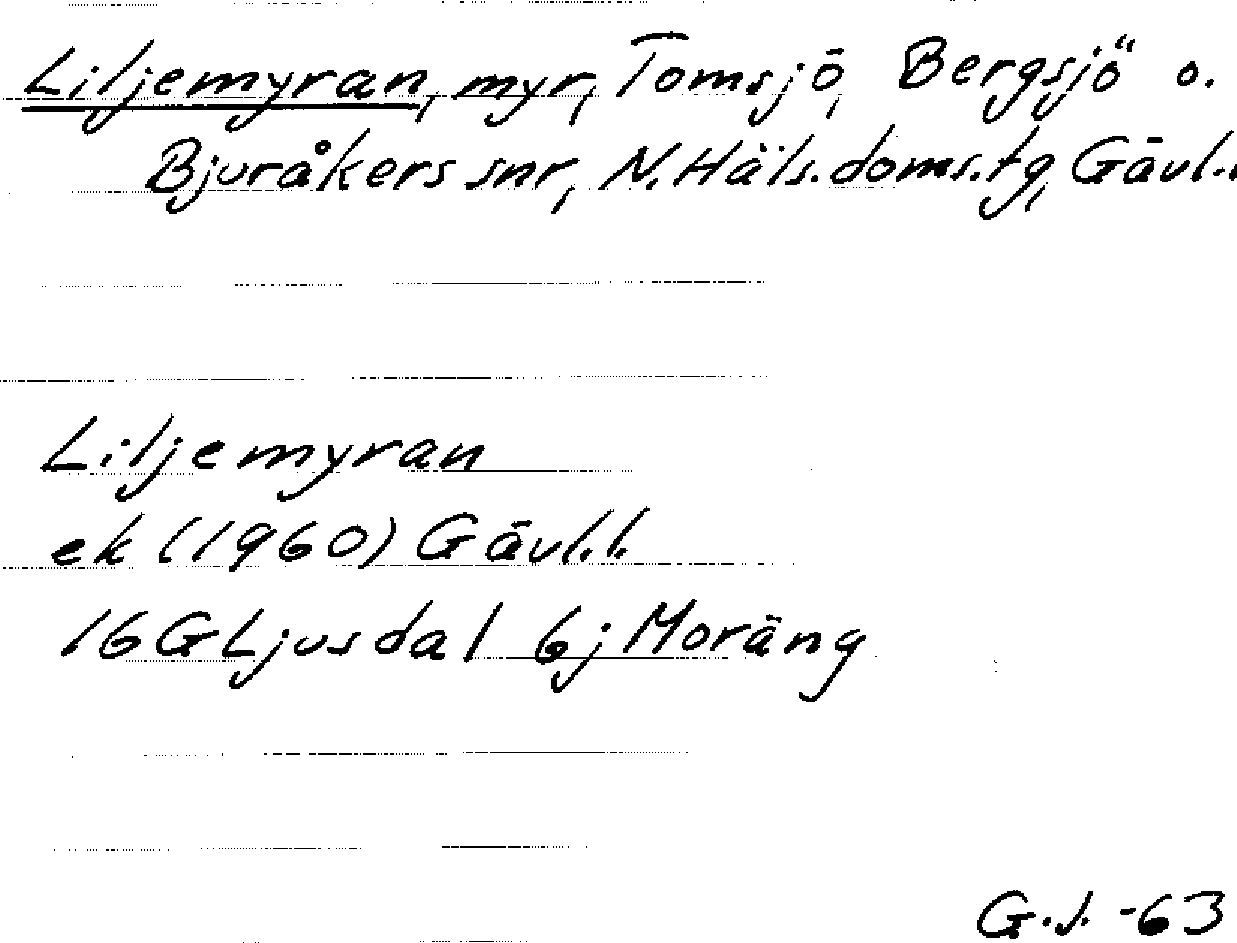 Liljemyran, myr, Tomsjö, Bergsjö o.
Bjuråkers snr, N. Häls. doms. tg, Gävl.l.
Liljemyran
ek (1960) Gävl.l.
16G Ljusdal 6j Moräng
G.J. -63